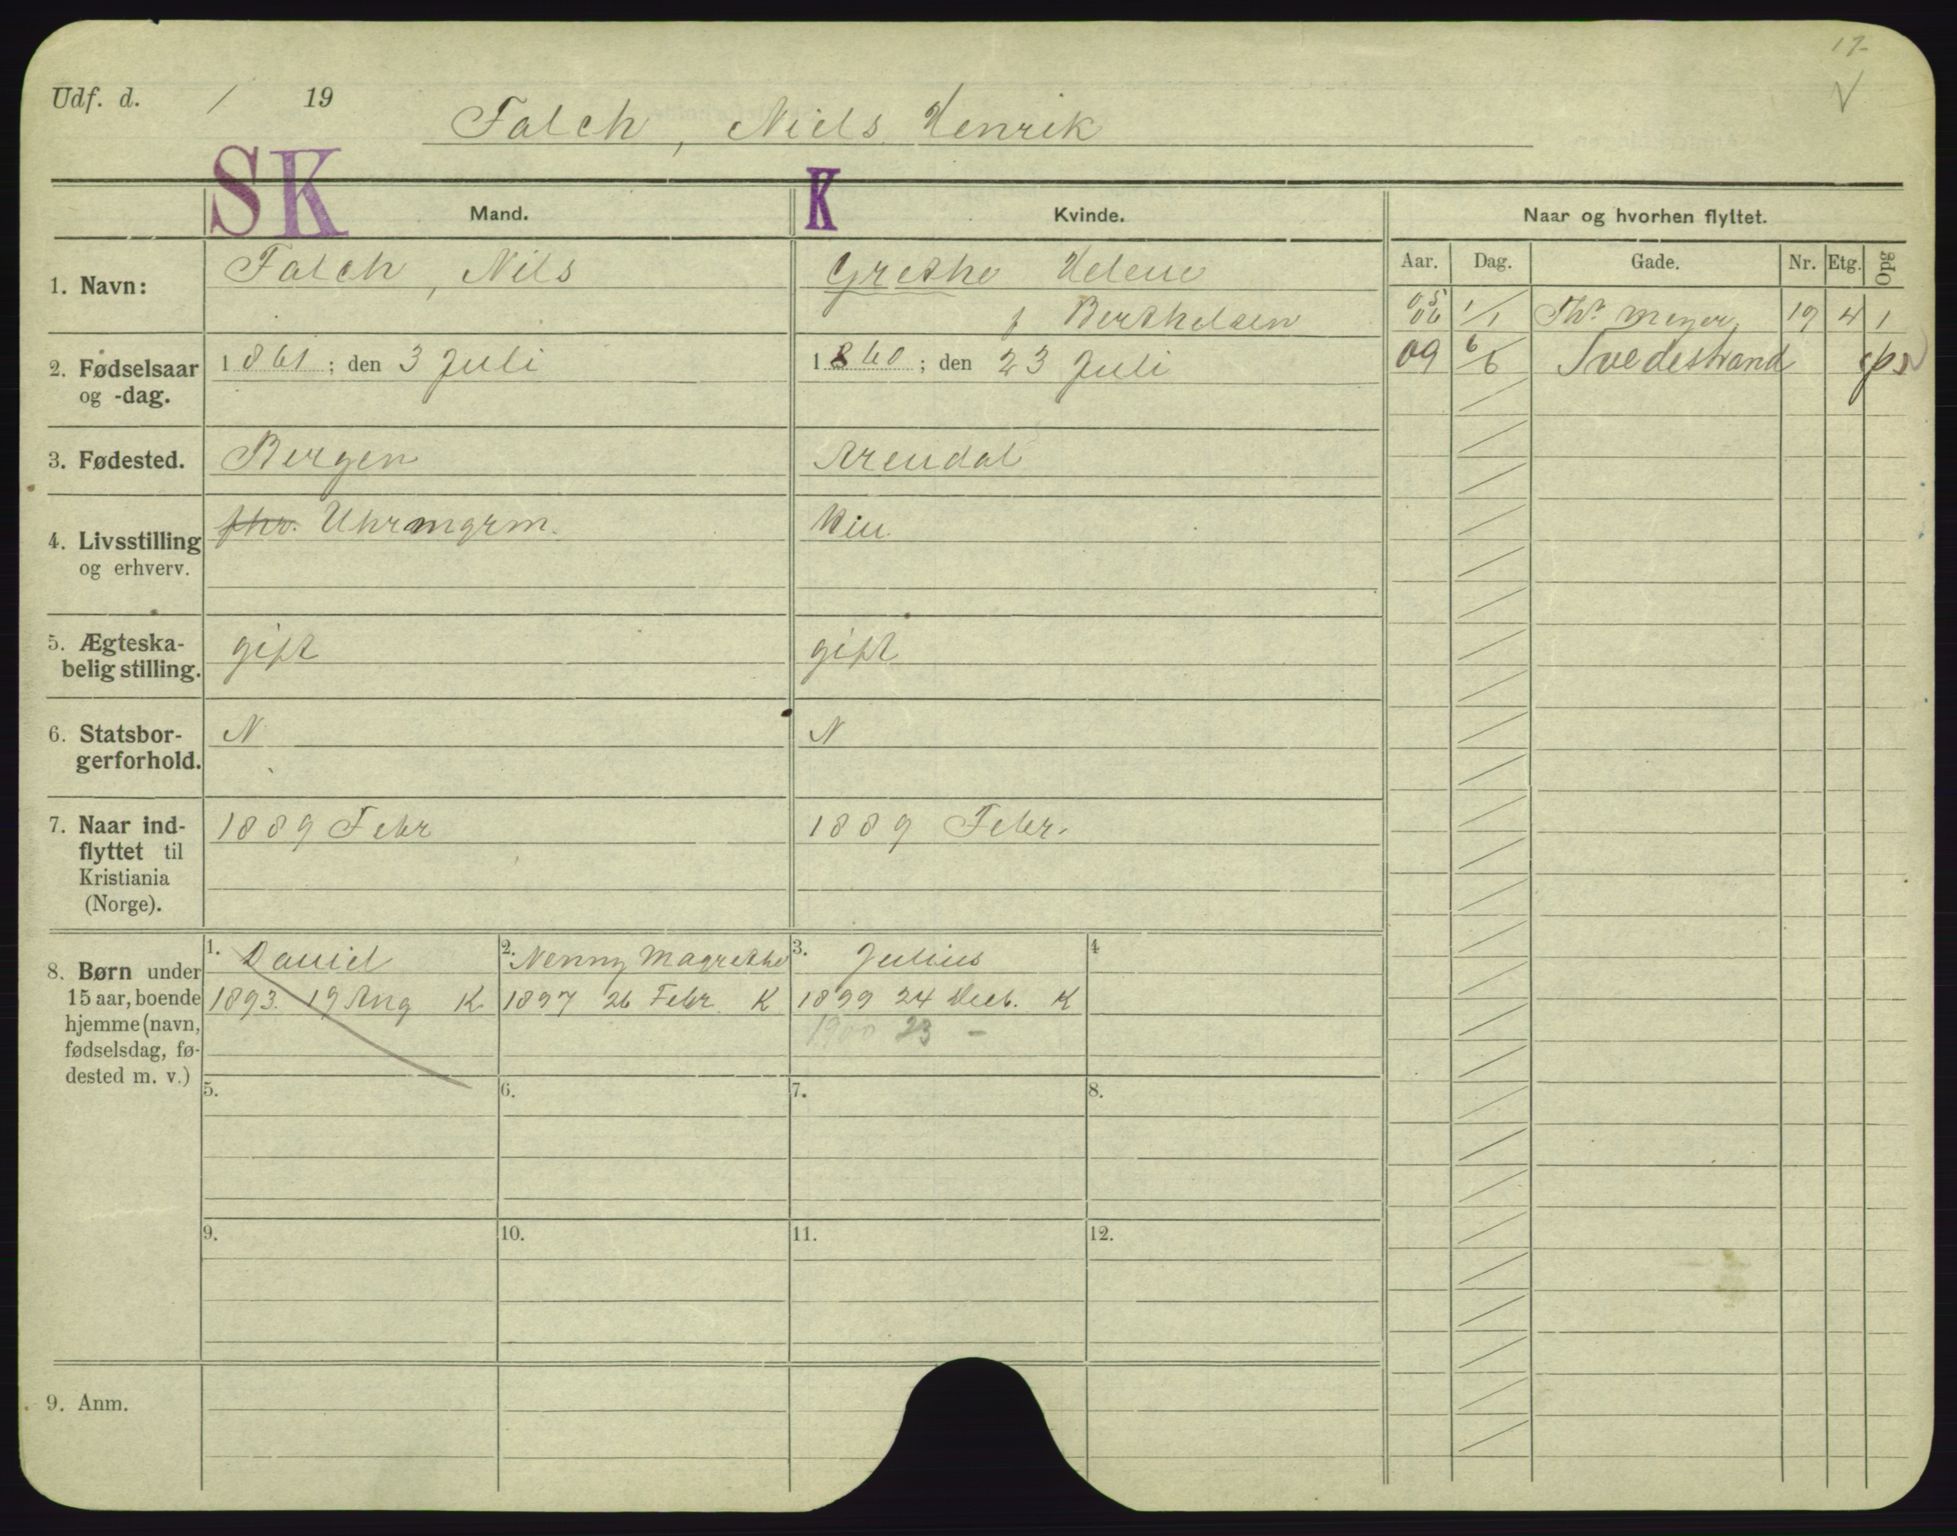 17
Udf. d. / 19
Falch, Niels Henrik
SK Mand. K Kvinde. Naar og hvorhen flyttet.
Aar. Dag. Gade. Nr. Etg. Opg
1. Navn: Falch, Nils Grethe Helene
f Berthelsen
05
06 1/1 Th. Meyer 19 4 1
09 6/6 Tvedestrand
2. Fødselsaar 1861; den 3 Juli 1860; den 23 Juli
og -dag.
3. Fødested. Bergen Arendal
4. Livsstilling fhv. Uhrmgrm.
og erhverv.
5. Ægteska- gift gift
belig stilling.
6. Statsbor- N N
gerforhold.
7. Naar ind- 1889 Febr 1889 Febr.
flyttet til
Kristiania
(Norge).
8. Børn under
15 aar, boende
hjemme (navn,
fødselsdag, fø-
dested m. v.)
1. David
1893. 19 Aug K
2. Nenny Magrethe
1897 26 Febr K
3. Julius
1899 24 Decb. K
1900 23 -
4
5. 6. 7. 8.
9. 10. 11. 12.
9. Anm.